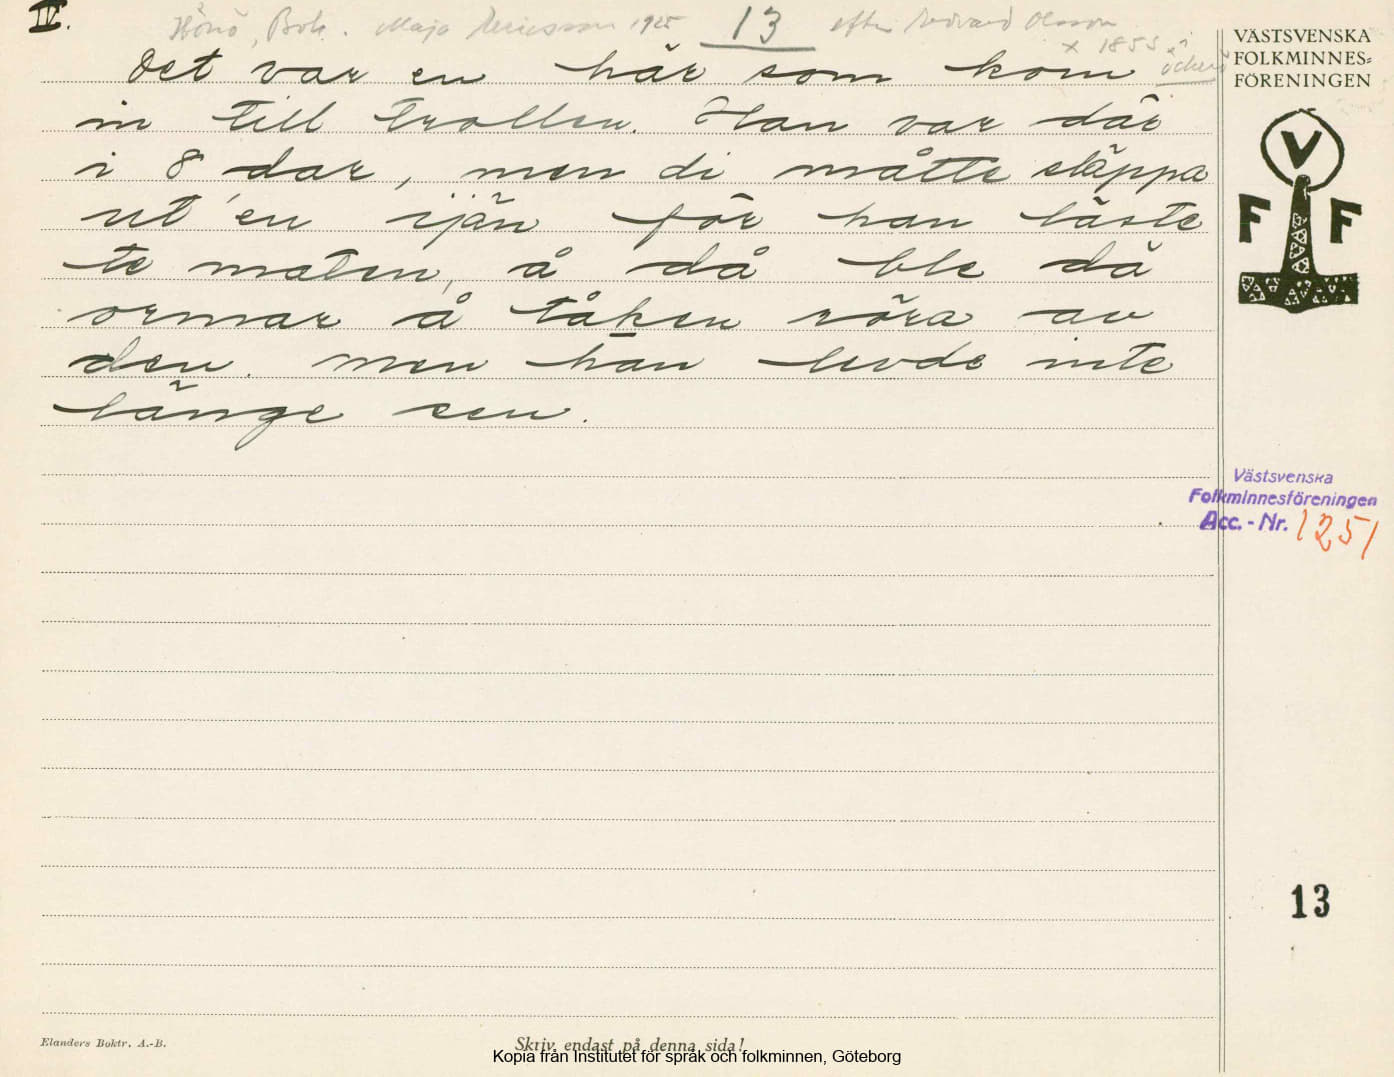 IV.
Hönö, Boh. Maja Ericsson 1925 13 efter Edvard Olsson
x 1855 i
Öckerö
Det var en här som kom
in till trollen. Han var där
i 8 dar, men di måtte släppa
ut 'en ijän för han läste
te maten, å då ble dä
ormar å tåken röra av
den. Men han levde inte
länge sen.
VÄSTSVENSKA
FOLKMINNES=
FÖRENINGEN
V
F F
Västsvenska
Folkminnesföreningen
Acc. - Nr. 1251
13
Elanders Boktr. A.-B.
Skriv endast på denna sida!
Kopia från Institutet för språk och folkminnen, Göteborg